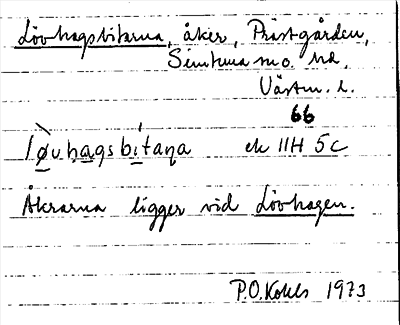 Lövhagsbitarna, åker, Prästgården,
Simtuna sn o. hd.
Västm. l.
66
løvhagsbitaṇa ek 11H 5c
Åkrarna ligger vid Lövhagen.
P.O. 1973